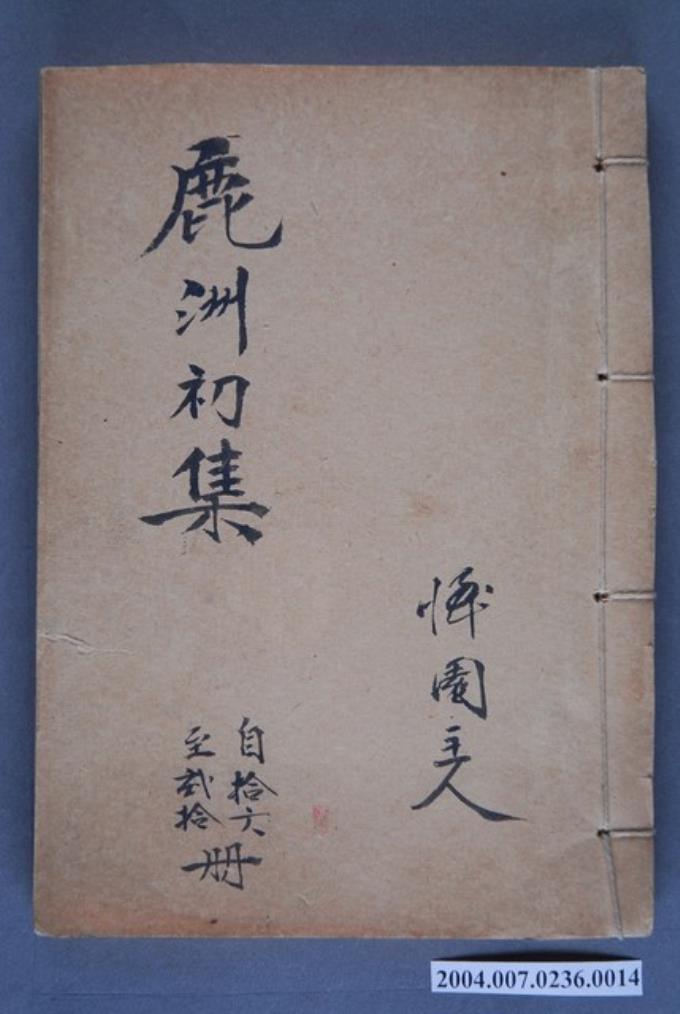 園主人
鹿洲初集
自拾六
至貳拾
冊
2004.007.0236.0014